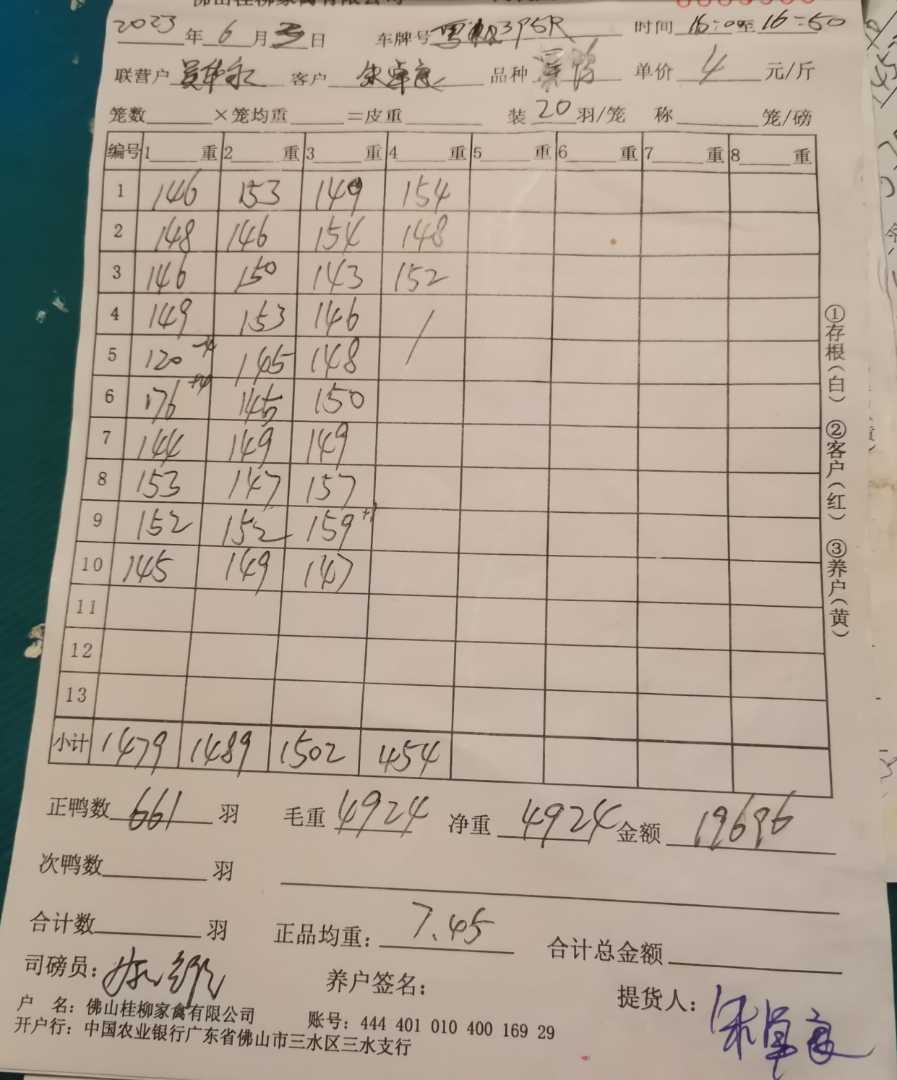 佛山桂柳家禽有限公司
2023年6月3日 车牌号 395R 时间 16:00至16:50
联营户 客户 宋卓良 品种 单价 4 元/斤
笼数 ×笼均重 =皮重 装 20 羽/笼 称 笼/磅
编号 1 重 2 重 3 重 4 重 5 重 6 重 7 重 8 重
1 146 153 149 154
2 148 146 154 148
3 146 150 143 152
4 149 153 146 /
5 120 -4 145 148
6 176 145 150
7 144 149 149
8 153 147 157
9 152 152 159 +1
10 145 149 147
11
12
13
小计 1479 1489 1502 454
正鸭数 661 羽 毛重 4924 净重 4924 金额 19696
次鸭数 羽
合计数 羽 正品均重: 7.45 合计总金额
司磅员: 养户签名: 提货人: 宋卓良
户 名: 佛山桂柳家禽有限公司 账号: 444 401 010 400 169 29
开户行: 中国农业银行广东省佛山市三水区三水支行
①存根(白) ②客户(红) ③养户(黄)